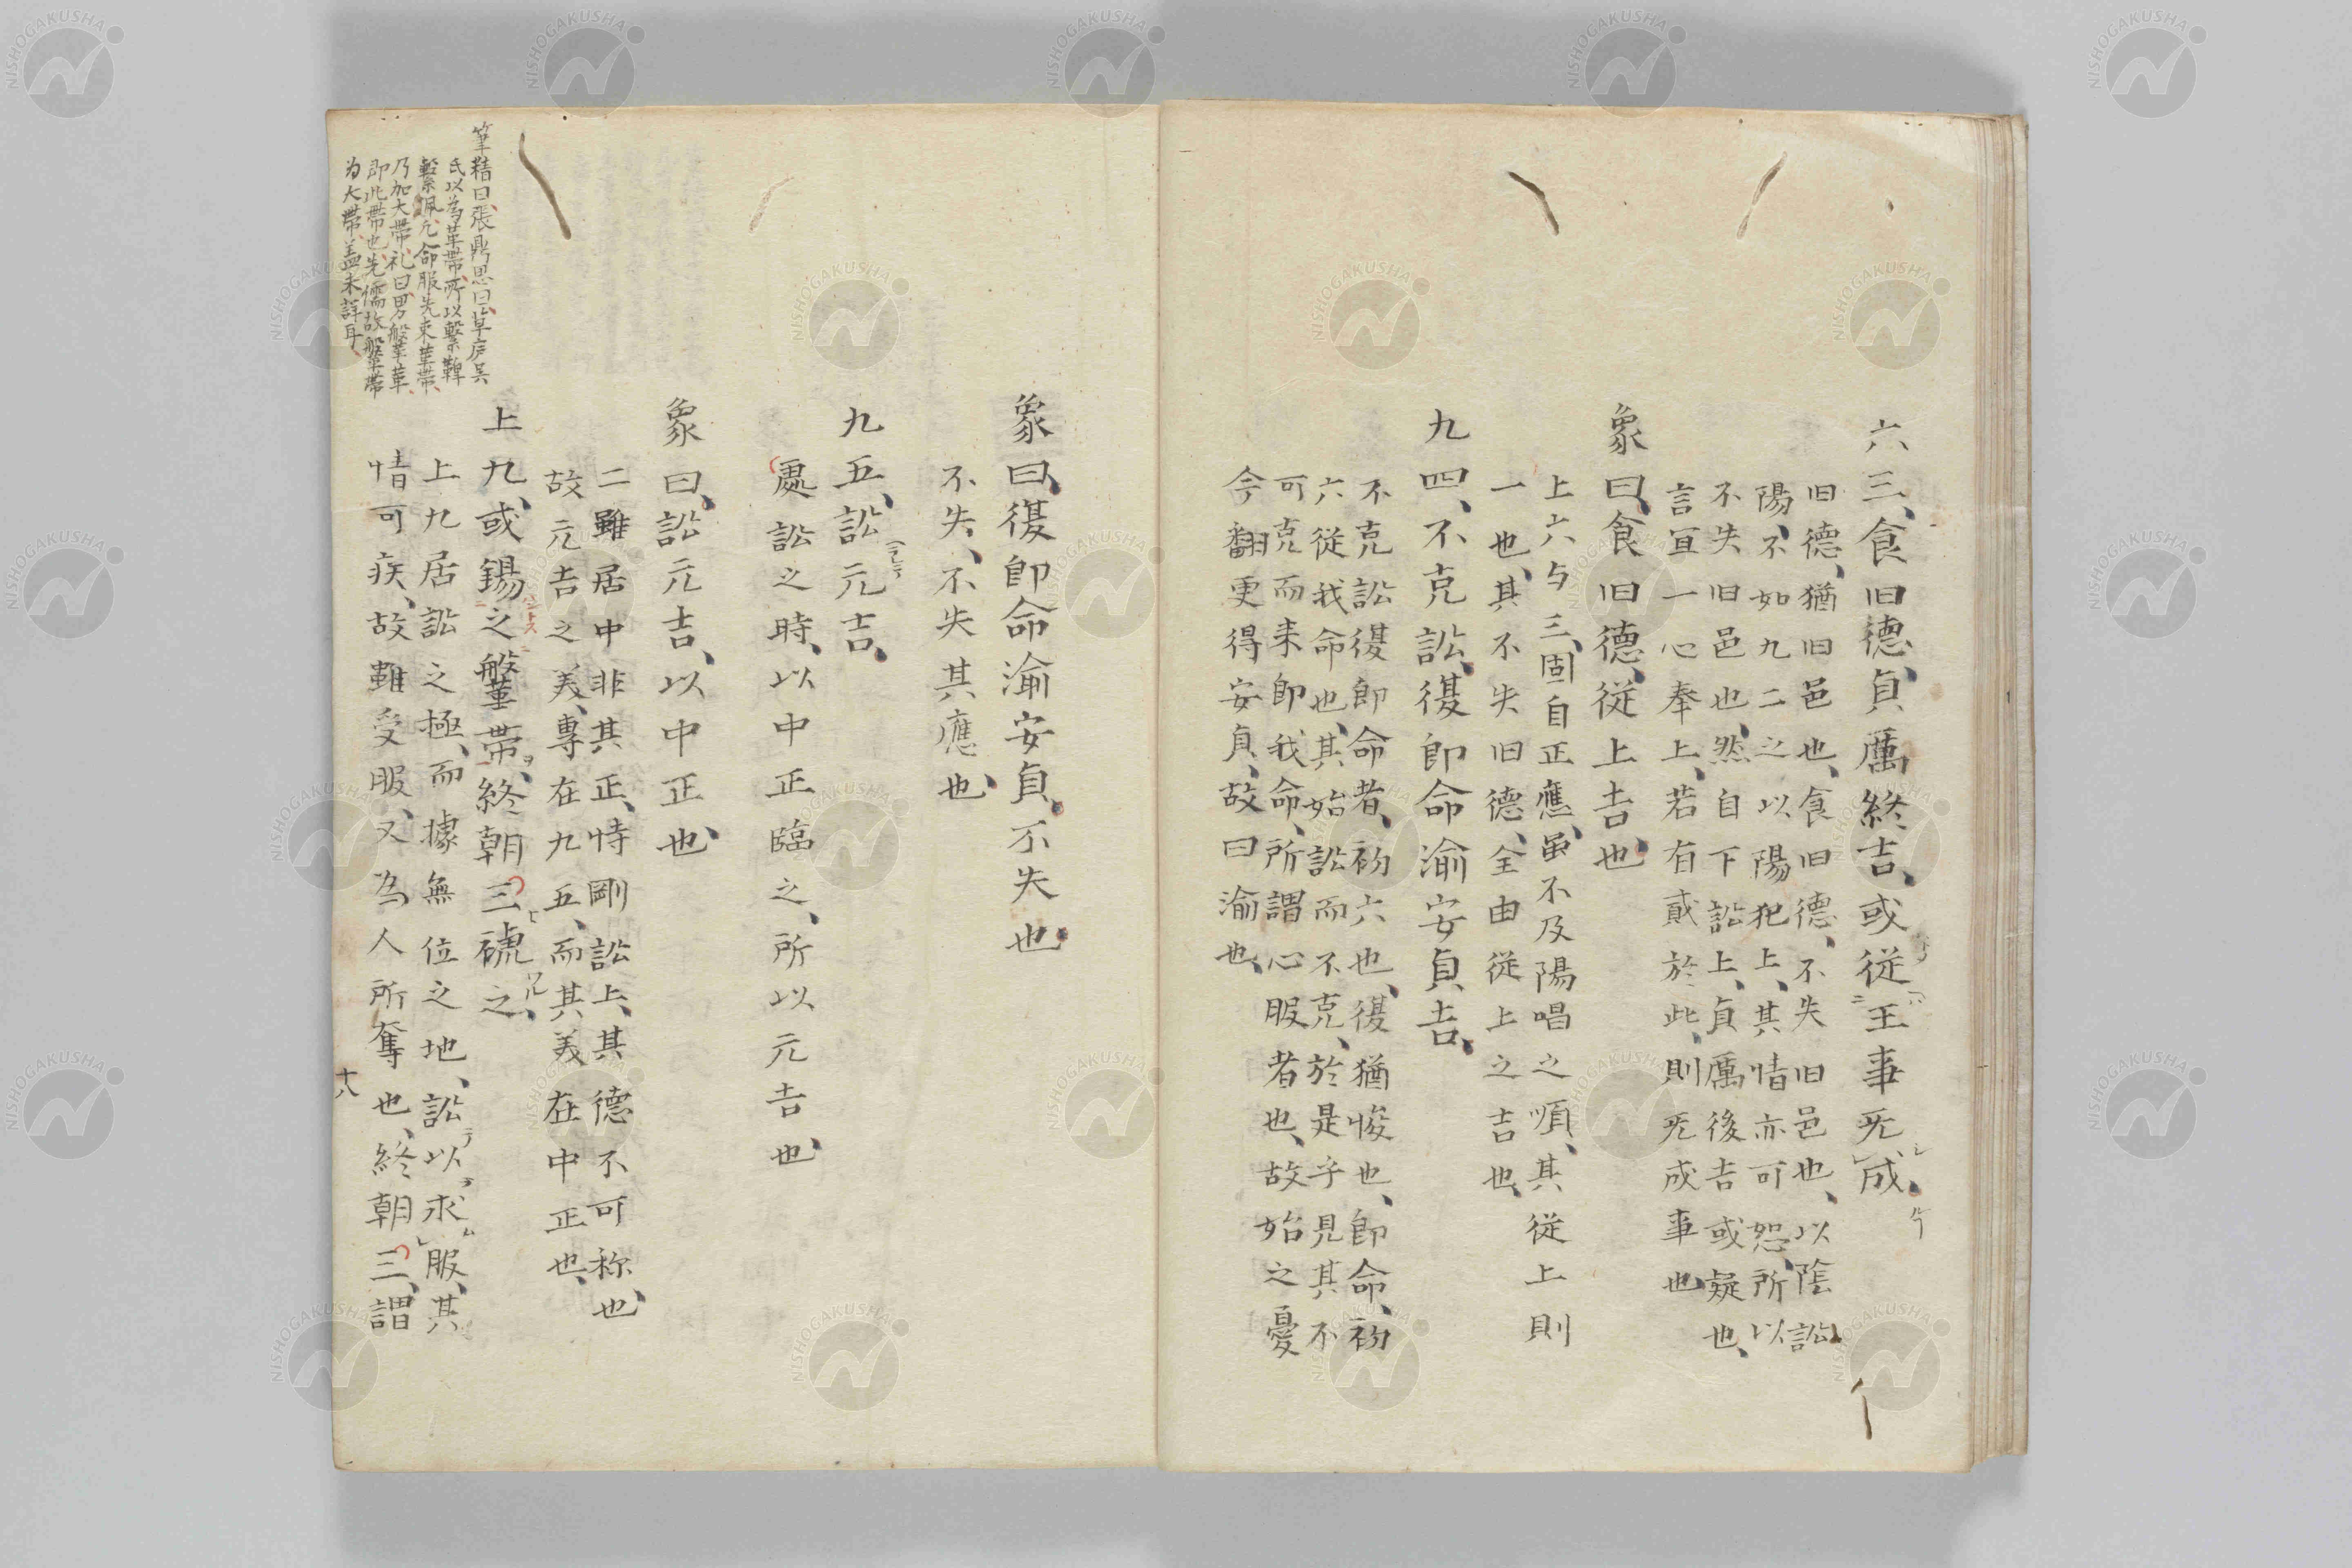 六三、食旧德、貞厲終吉、或從王事无成、
旧德、猶旧邑也、食旧德、不失旧邑也、以陰訟
陽、不如九二之以陽犯上、其情亦可恕、所以
不失旧邑也、然自下訟上、貞厲後吉或疑也、
言宜一心奉上、若有貳於此、則无成事也
象曰、食旧德、從上吉也
上六与三、固自正應、虽不及陽唱之順、其從上則
一也、其不失旧德、全由從上之吉也、
九四、不克訟、復即命渝安貞吉、
不克訟復即命者、初六也、復猶悛也、即命、初
六從我命也、其始訟而不克、於是乎見其不
可克而来即我命、所謂心服者也、故始之憂
今翻更得安貞、故曰渝也、
象曰、復即命渝安貞、不失也
不失、不失其應也、
九五、訟元吉、
處訟之時、以中正臨之、所以元吉也、
象曰、訟元吉、以中正也、
二雖居中非其正、恃剛訟上、其德不可称也、
故元吉之美、專在九五、而其美在中正也、
上九、或錫之鞶帯、終朝三褫之、
上九居訟之極、而據無位之地、訟以求服、其
情可疾、故雖受服、又為人所奪也、終朝三、謂
筆精曰、張鼎思曰、草庐吴
氏以為革帯、所以繫鞸
繫佩、凡命服先束革帯、
乃加大帯、礼曰男鞶革、
即此帯也、先儒故鞶帯
为大帯、盖未詳耳、
十八
NISHOGAKUSHA